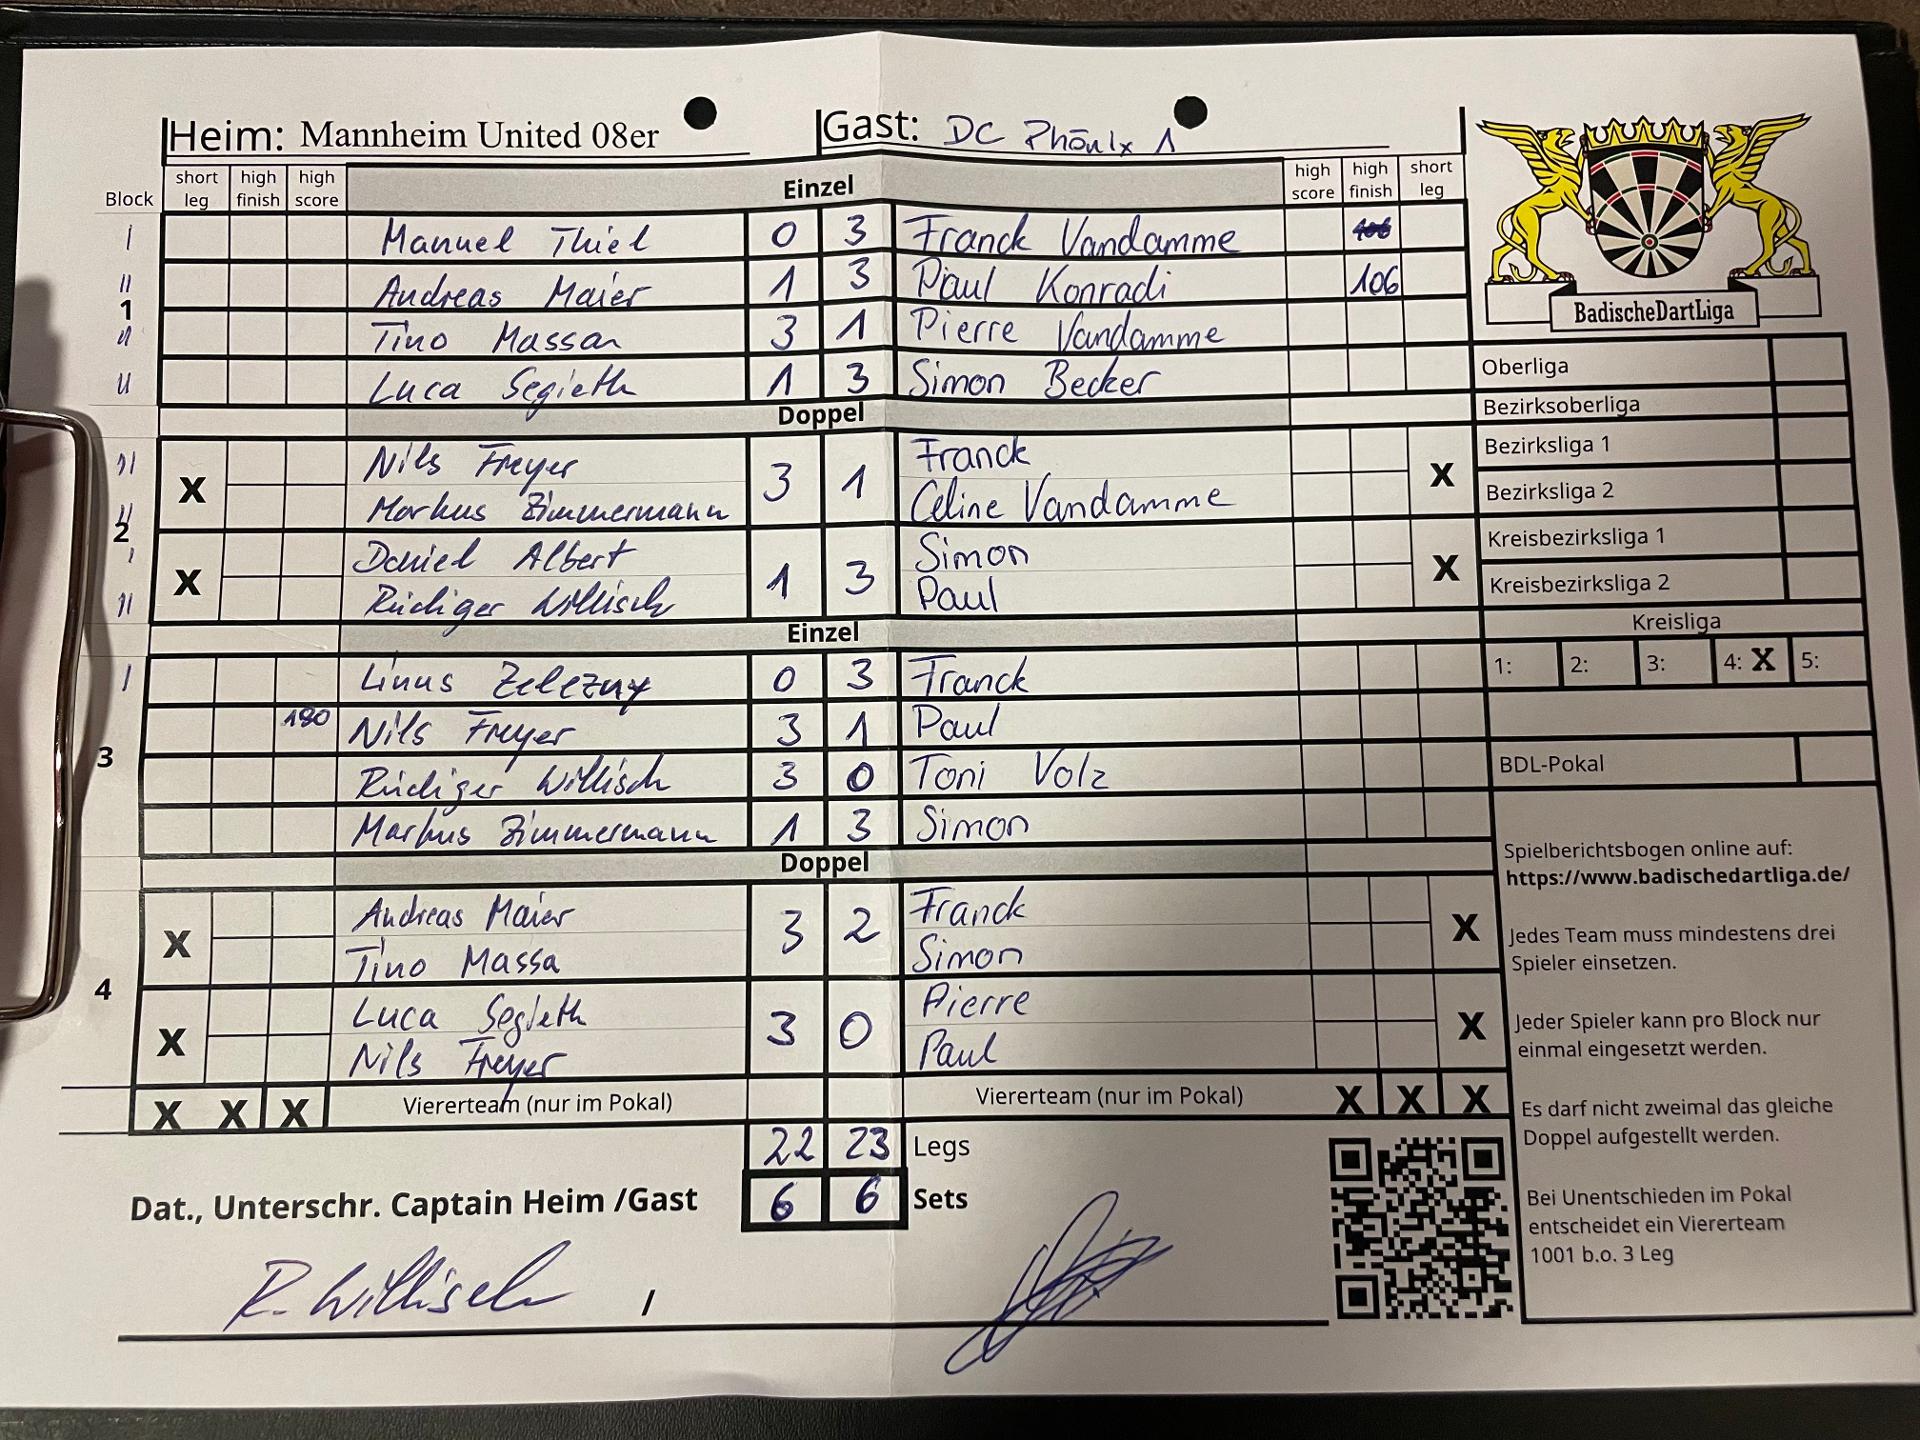 Heim: Mannheim United 08er Gast: DC Phönix 1
Block short leg high finish high score Einzel high score high finish short leg
I Manuel Thiel 0 3 Franck Vandamme
II Andreas Maier 1 3 Paul Konradi 106
1
II Tino Massa 3 1 Pierre Vandamme
II Luca Segieth 1 3 Simon Becker
Doppel
III Nils Freyer Franck
X 3 1 X
II Markus Zimmermann Celine Vandamme
2
I Daniel Albert Simon
X 1 3 X
III Rüdiger Willisch Paul
Einzel
I Linus Zelezny 0 3 Franck
180 Nils Freyer 3 1 Paul
3
Rüdiger Willisch 3 0 Toni Volz
Markus Zimmermann 1 3 Simon
Doppel
Andreas Maier Franck
X 3 2 X
Tino Massa Simon
4
Luca Segieth Pierre
X 3 0 X
Nils Freyer Paul
X X X Viererteam (nur im Pokal) Viererteam (nur im Pokal) X X X
22 23 Legs
Dat., Unterschr. Captain Heim /Gast 6 6 Sets
R. Willisch /
BadischeDartLiga
Oberliga
Bezirksoberliga
Bezirksliga 1
Bezirksliga 2
Kreisbezirksliga 1
Kreisbezirksliga 2
Kreisliga
1: 2: 3: 4: X 5:
BDL-Pokal
Spielberichtsbogen online auf:
https://www.badischedartliga.de/
Jedes Team muss mindestens drei
Spieler einsetzen.
Jeder Spieler kann pro Block nur
einmal eingesetzt werden.
Es darf nicht zweimal das gleiche
Doppel aufgestellt werden.
Bei Unentschieden im Pokal
entscheidet ein Viererteam
1001 b.o. 3 Leg